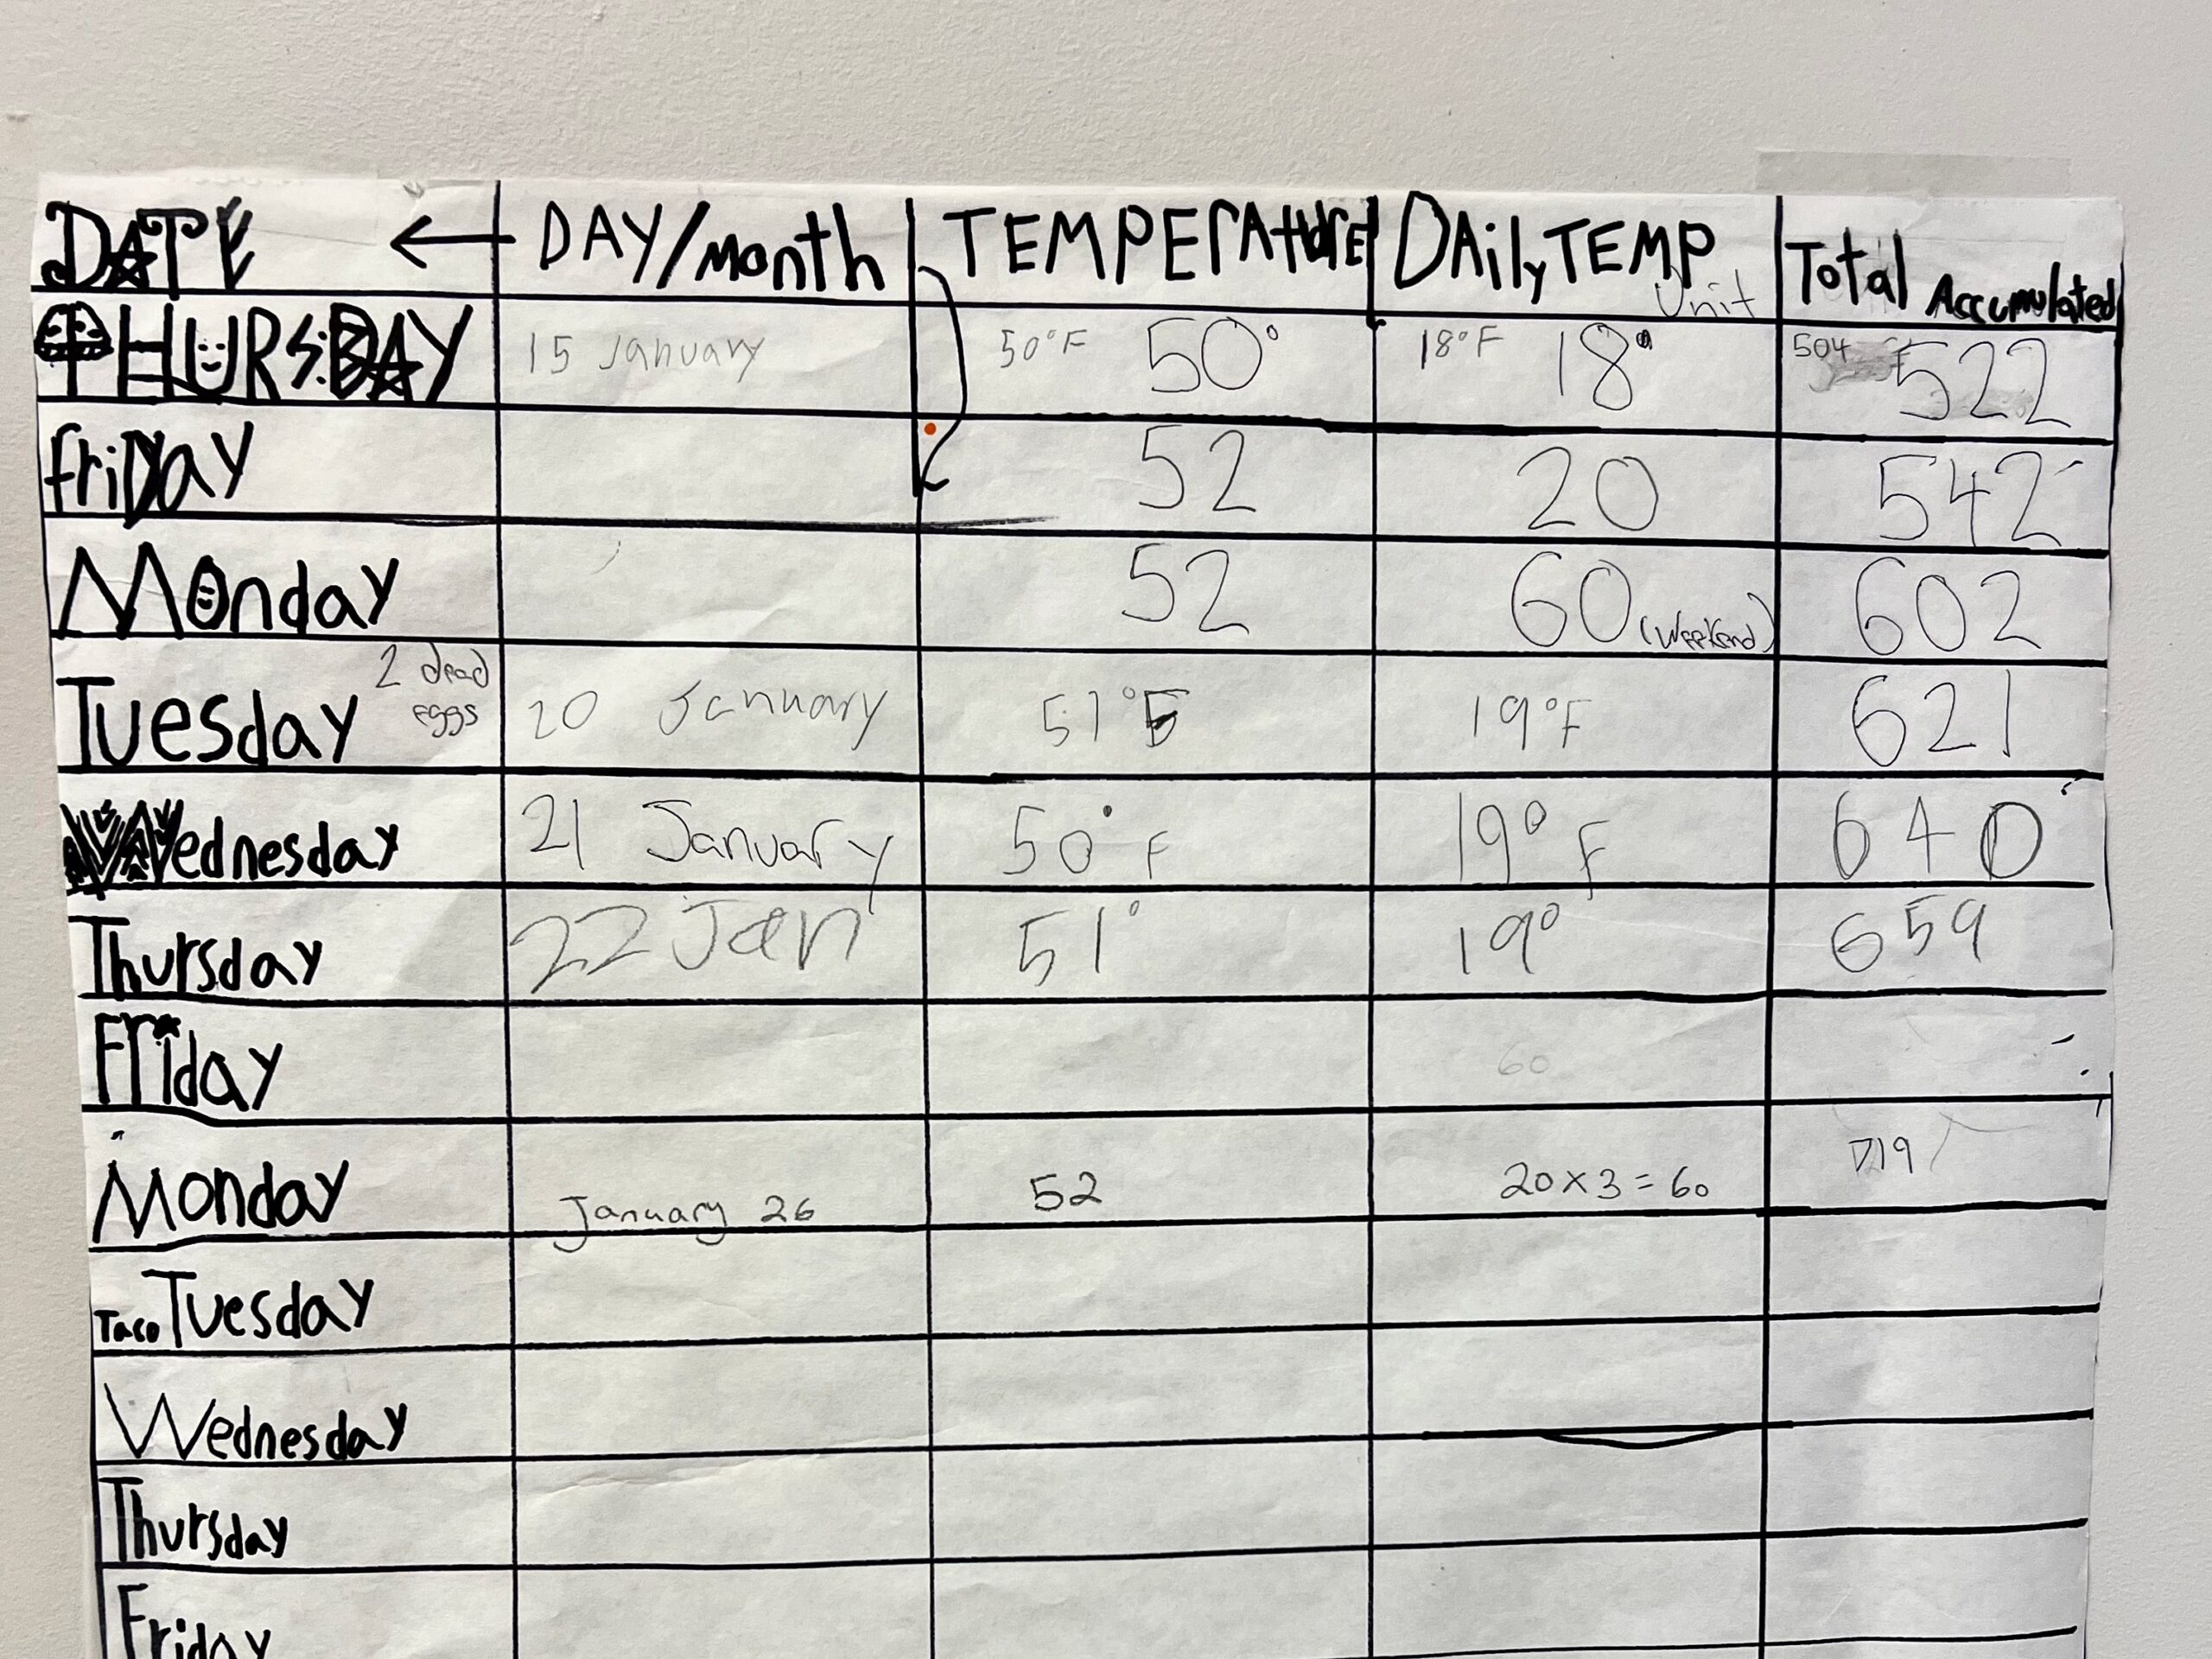 DATE ← DAY/Month TEMPErAture DAilyTEMP Unit Total Accumulated
THURSDAY 15 January 50°F 50° 18°F 18° 504 522
friDay 52 20 542
Monday 52 60 (weekend) 602
Tuesday 2 dead eggs 20 January 51°F 19°F 621
Wednesday 21 January 50°F 19°F 640
Thursday 22 Jan 51° 19° 659
Friday 60
Monday January 26 52 20x3=60 719
Taco Tuesday
Wednesday
Thursday
Friday